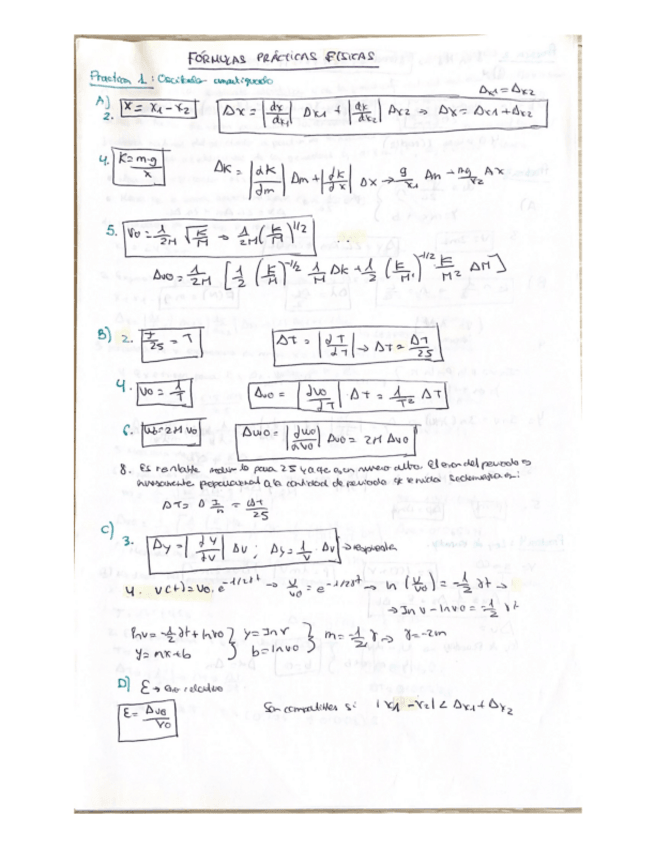 FÓRMULAS PRÁCTICAS FÍSICAS
Practica 1: Oscilador amortiguado
Δx1 = Δx2
A) 2. x = x1 - x2 Δx = |dx/dx1| Δx1 + |dx/dx2| Δx2 → Δx = Δx1 + Δx2
4. K = m·g/x ΔK = |dK/dm| Δm + |dK/dx| Δx → g/x1 Δm + mg/x2 Δx
5. ν0 = 1/2π √K/M → 1/2π (K/M)^1/2
Δν0 = 1/2π [1/2 (K/M)^-1/2 1/M ΔK + 1/2 (K/M)^-1/2 K/M² ΔM]
B) 2. T/25 = T ΔT = |dT/dT| → ΔT = ΔT/25
4. ν0 = 1/T Δν0 = |dν0/dT| · ΔT = 1/T² ΔT
6. ω0 = 2π ν0 Δω0 = |dω0/dν0| Δν0 = 2π Δν0
8. Es rentable medir lo para 25 ya que es un numero alto. El error del periodo es
inversamente proporcional a la cantidad de periodo que
ΔT = Δ = ΔT/25
C) 3. Δy = |dy/dv| Δv ; Δy = 1/v · Δv → respuesta
4. v(t) = v0 · e^-1/2γt → v/v0 = e^-1/2γt → ln (v/v0) = -1/2 γt →
→ ln v - ln v0 = -1/2 γt
ln v = -1/2 γt + ln v0 } y = ln v } m = -1/2 γ → γ = -2m
y = mx + b } b = ln v0 }
D) ε → error relativo
ε = Δν0/ν0 Son compatibles si |x1 - x2| < Δx1 + Δx2